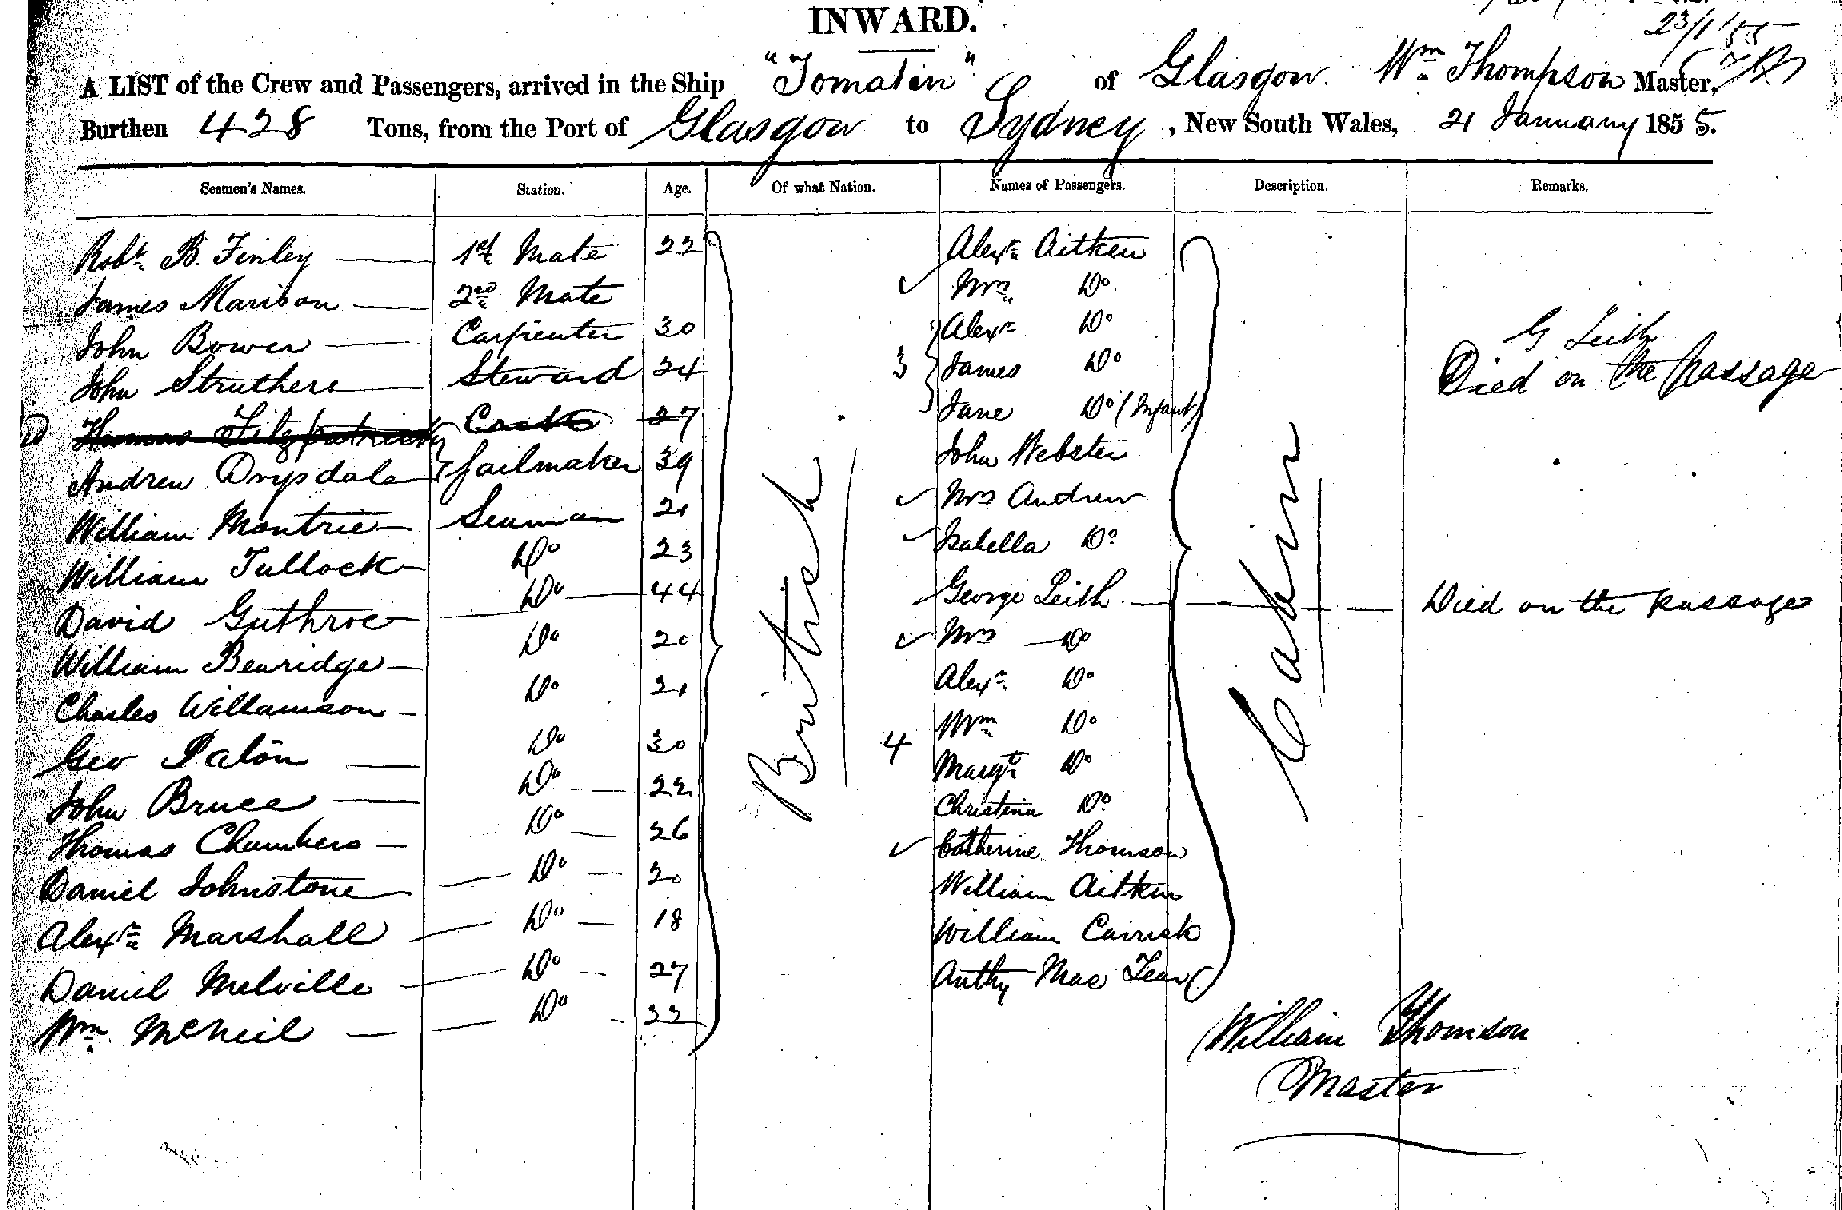 INWARD.
23/1/55
A LIST of the Crew and Passengers, arrived in the Ship "Tomatin" of Glasgow Wm Thompson Master,
Burthen 428 Tons, from the Port of Glasgow to Sydney, New South Wales, 21 January 1855.
Seamen's Names. Station. Age. Of what Nation. Names of Passengers. Description. Remarks.
Robt. B. Finley 1st Mate 22 Alexr Aitken
James Marison 2nd Mate Mrs Do
John Bower Carpenter 30 Alexr Do
G Leith
John Struthers Steward 24 3 James Do Died on the passage
Thomas Fitzpatrick Cook 27 Jane Do (Infant)
Andrew Drysdale Sailmaker 39 John Webster
William Montrie Seaman 21 Mrs Andrew
William Tullock Do 23 Isabella Do
David Guthroe Do 44 George Leith Died on the passage
William Bearidge Do 20 Mrs Do
Charles Willamson Do 21 Alexr Do
Geo Paton Do 30 4 Wm Do
John Bruce Do 22 Margt Do
Thomas Chambers Do 26 Christina Do
Daniel Johnstone Do 20 Catherine Thomson
Alexr Marshall Do 18 William Aitken
Daniel Melville Do 27 William Carrick
Wm McNeil Do 22 Anthy Mac Tear
British
Cabin
William Thomson
Master